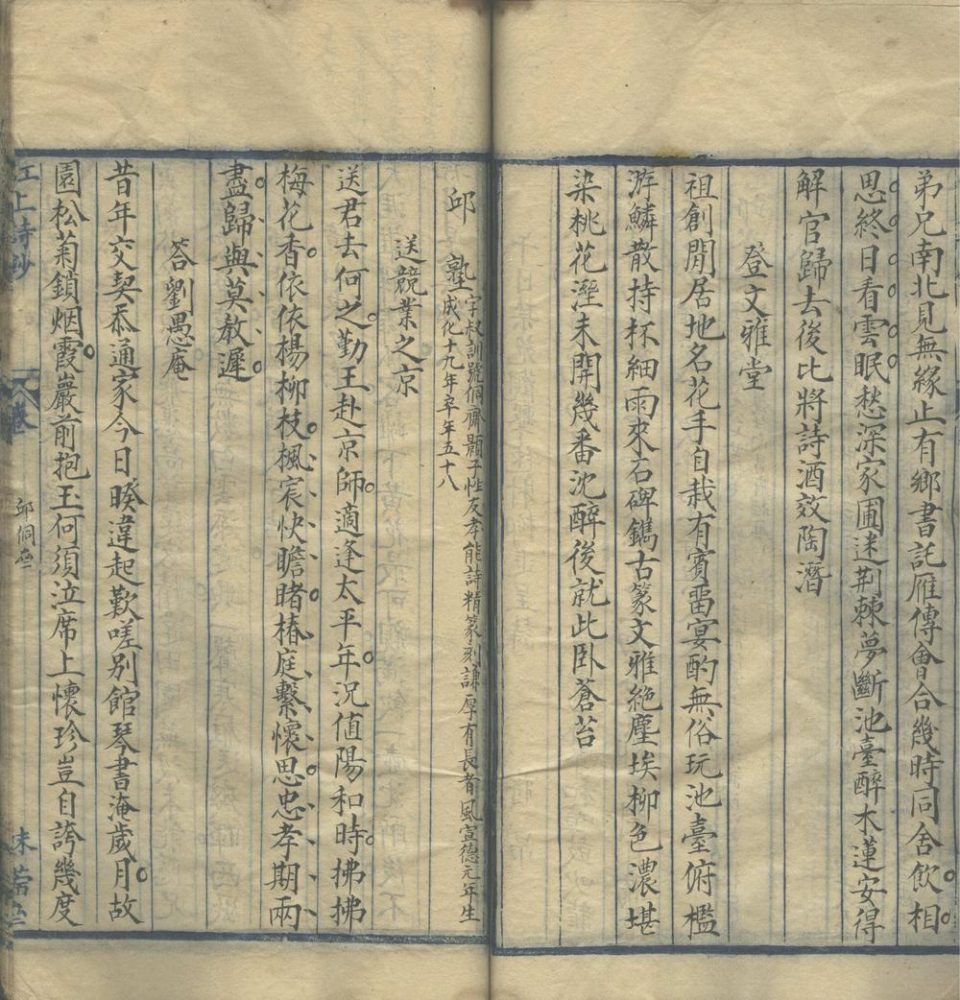 弟兄南北見無緣止有鄉書託雁傳會合幾時同舍飲相
思終日看雲眠愁深家圃迷荆棘夢斷池臺醉木蓮安得
解官歸去後比將詩酒效陶潛
登文雅堂
祖創閒居地名花手自栽有賓畱宴酌無俗玩池臺俯檻
游鱗散持杯細雨來石碑鐫古篆文雅絶塵埃柳色濃堪
染桃花溼未開幾番沈醉後就此卧蒼苔
邱塾字叔訓號侗齋顒子性友孝能詩精篆刻謙厚有長者風宣德元年生
成化十九年卒年五十八
送競業之京
送君去何之勤王赴京師適逢太平年況值陽和時拂拂
梅花香依依楊柳枝楓宸快瞻睹椿庭繫懷思忠孝期兩
盡歸與莫教遲
答劉愚庵
昔年交契忝通家今日暌違起歎嗟别館琴書淹歲月故
園松菊鎖烟霞巖前抱玉何須泣席上懷珍豈自誇幾度
江上詩鈔
卷
邱侗